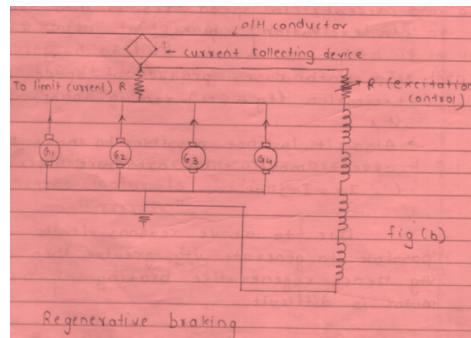 O/H conductor
current collecting device
To limit current) R
R (excitation
control)
G1
G2
G3
G4
fig (b)
Regenerative braking